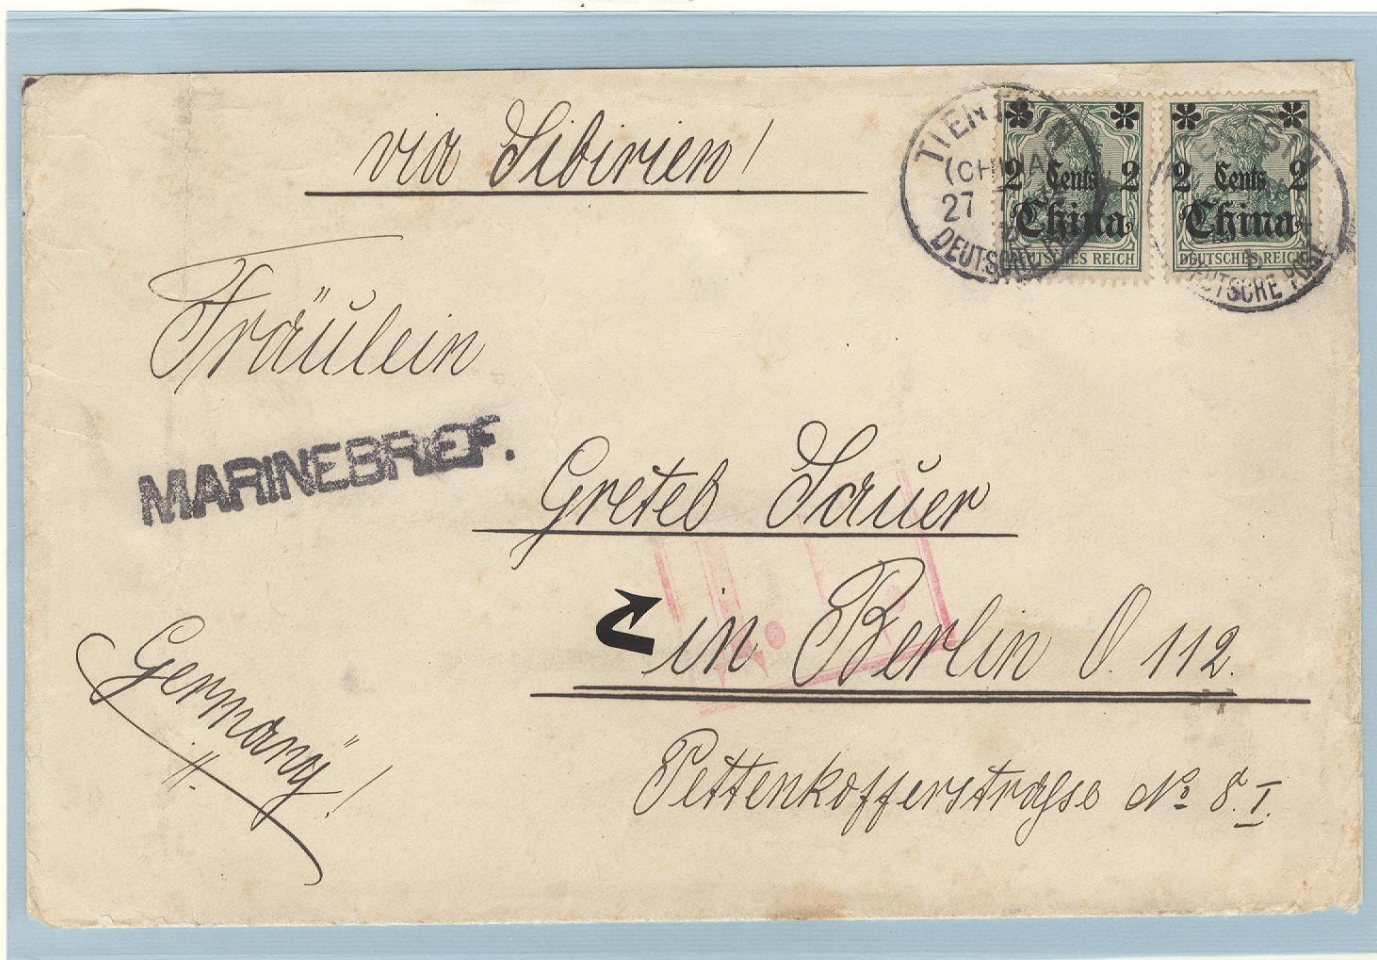 via Sibirien!
TIENTSIN
(CHINA)
27
DEUTSCHE
2 Cents 2
China
DEUTSCHES REICH
2 Cents 2
China
DEUTSCHES REICH
DEUTSCHE POST
Fräulein
MARINEBRIEF.
Gretel Sauer
in Berlin O. 112.
Germany!
Pettenkofferstrasse No 8. I.